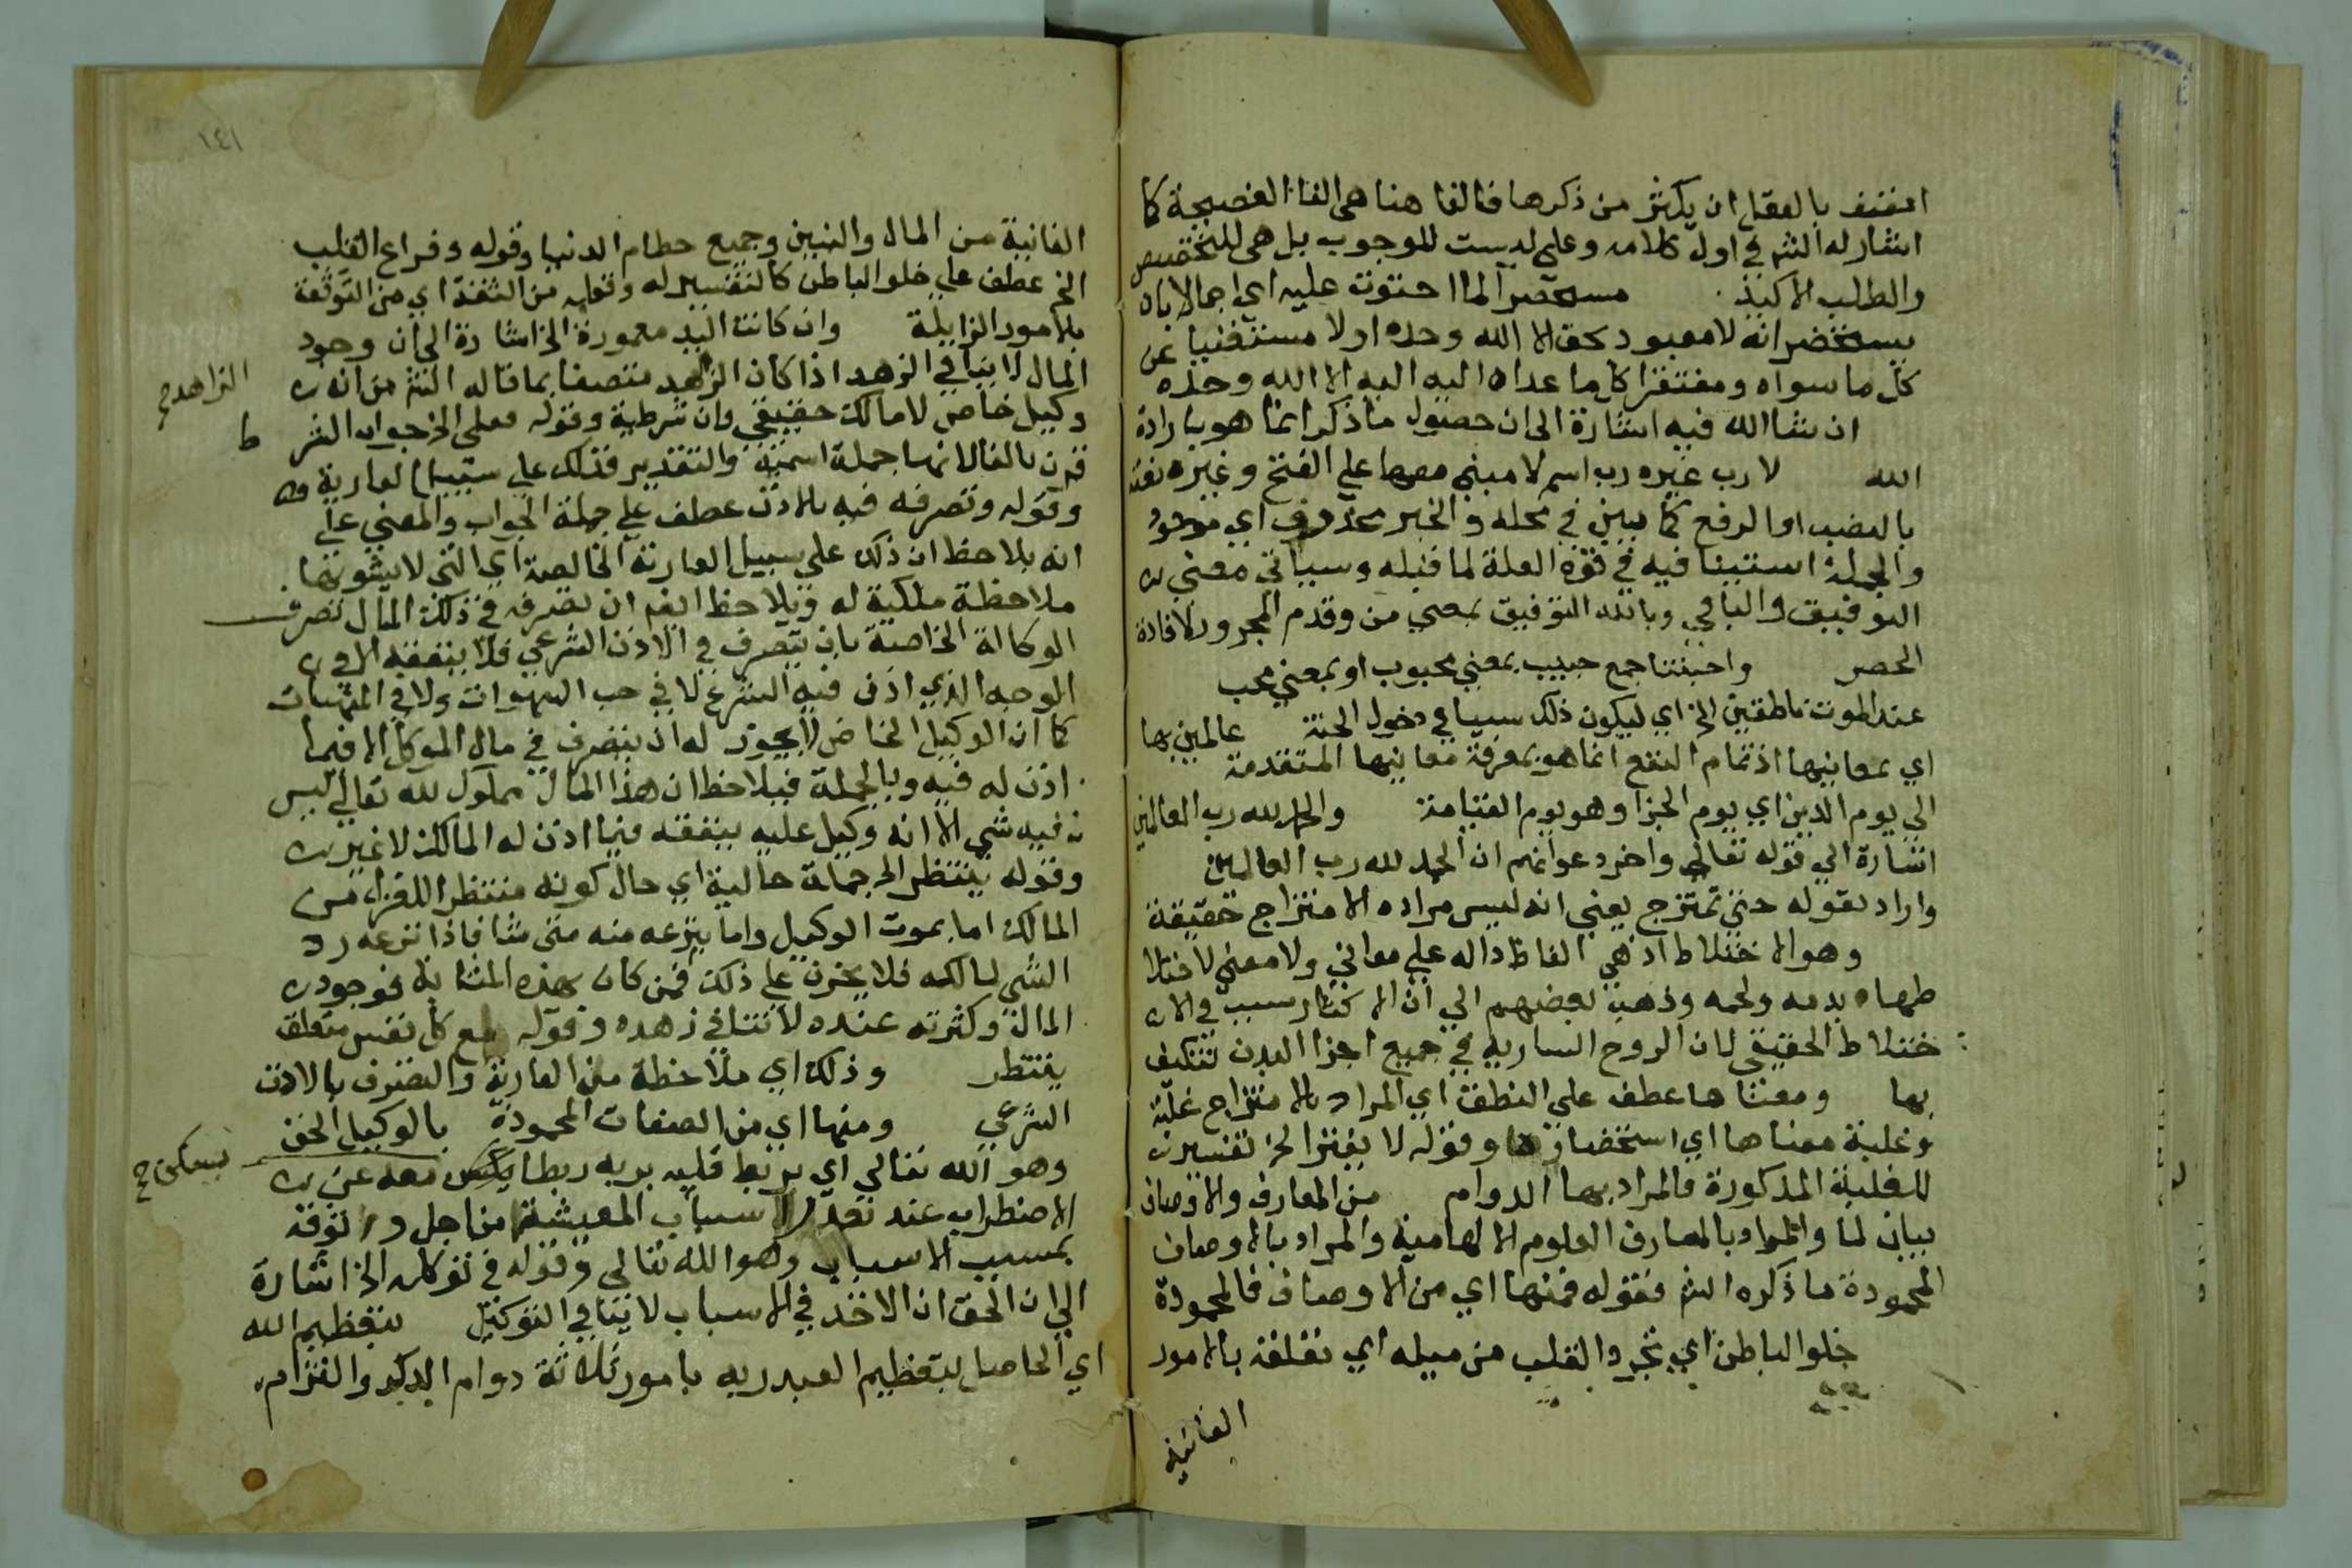 بالعقل ان يكثر من ذكرها فالفا هنا هي الفا الفصيحة كما
اشار له الش في اول كلامه وعلى ليست للوجوب بل هي للتخصيص
والطلب الاكيد مستحضرا لما احتوت عليه اي اجمالا بان
يستحضر انه لا معبود بحق الا الله وحده او لا مستغنيا عن
كل ما سواه ومفتقرا كل ما عداه اليه الا الله وحده
ان شا الله فيه اشارة الى ان حصول ما ذكر انما هو بارادة
الله لا رب غيره رب اسم لا مبني معها على الفتح وغيره
بالنصب او الرفع كما بين في محله والخبر محذوف اي موجود
والجملة استينافيه في قوة العلة لما قبله وسياتي معنى
التوفيق والباقي وبالله التوفيق بمعنى من وقدم المجرور لافادة
الحصر واحبتنا جمع حبيب بمعنى محبوب او بمعنى محب
عند الموت ناطقين الخ اي ليكون ذلك سببا في دخول الجنة عالمين بها
اي بمعانيها اذ تمام النفع انما هو بمعرفة معانيها المتقدمة
الى يوم الدين اي يوم الجزا وهو يوم القيامة والحمد لله رب العالمين
اشارة الى قوله تعالى واخر دعواهم ان الحمد لله رب العالمين
واراد بقوله حتى تمتزج يعني انه ليس مراده الامتزاج حقيقة
وهو الاختلاط اذ هي الفاظ داله على معاني ولا معنى لاختلا
طها بدمه ولحمه وذهب بعضهم الى ان الاكثار سبب في الا
ختلاط الحقيقي لان الروح السارية في جميع اجزا البدن تتكيف
بها ومعناها عطف على النطق اي المراد بالامتزاج غلبة
وغلبة معناها اي استحضارها وقوله لا يفتر الخ تفسير
للغلبة المذكورة فالمراد بها الدوام من المعارف والاوصاف
بيان لما والمراد بالمعارف العلوم الالهامية والمراد بالاوصاف
المحمودة ما ذكره الش فقوله فمنها اي من الاوصاف المحمودة
خلو الباطن اي تجرد القلب من ميله اي تعلقه بالامور
الفانية
١٤١
الفانية من المال والبنين وجميع حطام الدنيا وقوله وفراغ القلب
الخ عطف على خلو الباطن كالتفسير له وقوله من الثقة اي من التوثقة
بالامور الزايلة وان كانت اليد معمورة الخ اشارة الى ان وجود
المال لا ينافي الزهد اذا كان الزهد متصفا بما قاله الش من انه
الزاهد
وكيل خاص لا مالك حقيقي وان شرطية وقوله فعلى الخ جواب الشر
ط
قرن بالفا لانها جملة اسمية والتقدير فذلك على سبيل العارية
وقوله وتصرفه فيه بالاذن عطف على جملة الجواب والمعنى على
انه يلاحظ ان ذلك على سبيل العارية الخالصة اي التي لا يشوبها
ملاحظة ملكية له ويلاحظ ان تصرفه في ذلك المال تصرف
الوكالة الخاصة بان يتصرف في الاذن الشرعي فلا ينفقه الا في
الوجه الذي اذن فيه الشرع لا في حب الشهوات ولا في المنهيات
كما ان الوكيل الخاص لا يجوز له ان يتصرف في مال الموكل الا فيما
اذن له فيه وبالجملة فيلاحظ ان هذا المال مملوك لله تعالى ليس
فيه شي الا انه وكيل عليه ينفقه فيما اذن له المالك لا غير
وقوله ينتظر الخ جملة حالية اي حال كونه منتظرا للعزل من
المالك اما بموت الوكيل واما ينزعه منه متى شا فاذا نزعه رد
الشي لمالكه فلا يحزن على ذلك فمن كان بهذه المثابة فوجود
المال وكثرته عنده لا تنافي زهده وقوله مع كل نفس متعلق
ينتظر وذلك اي ملاحظة من العارية والتصرف بالاذن
الشرعي ومنها اي من الصفات المحمودة بالوكيل الحق
وهو الله تعالى اي يربط قلبه بربه ربطا معه عن
يسكن
الاضطراب عند تعذر الاسباب المعيشية من اجل وثوقه
بمسبب الاسباب وهو الله تعالى وقوله في توكله الخ اشارة
الى ان الحق ان الاخذ في الاسباب لا ينافي التوكل بتعظيم الله
اي الحاصل بتعظيم العبد ربه بامور ثلاثة دوام الذكر والتزام